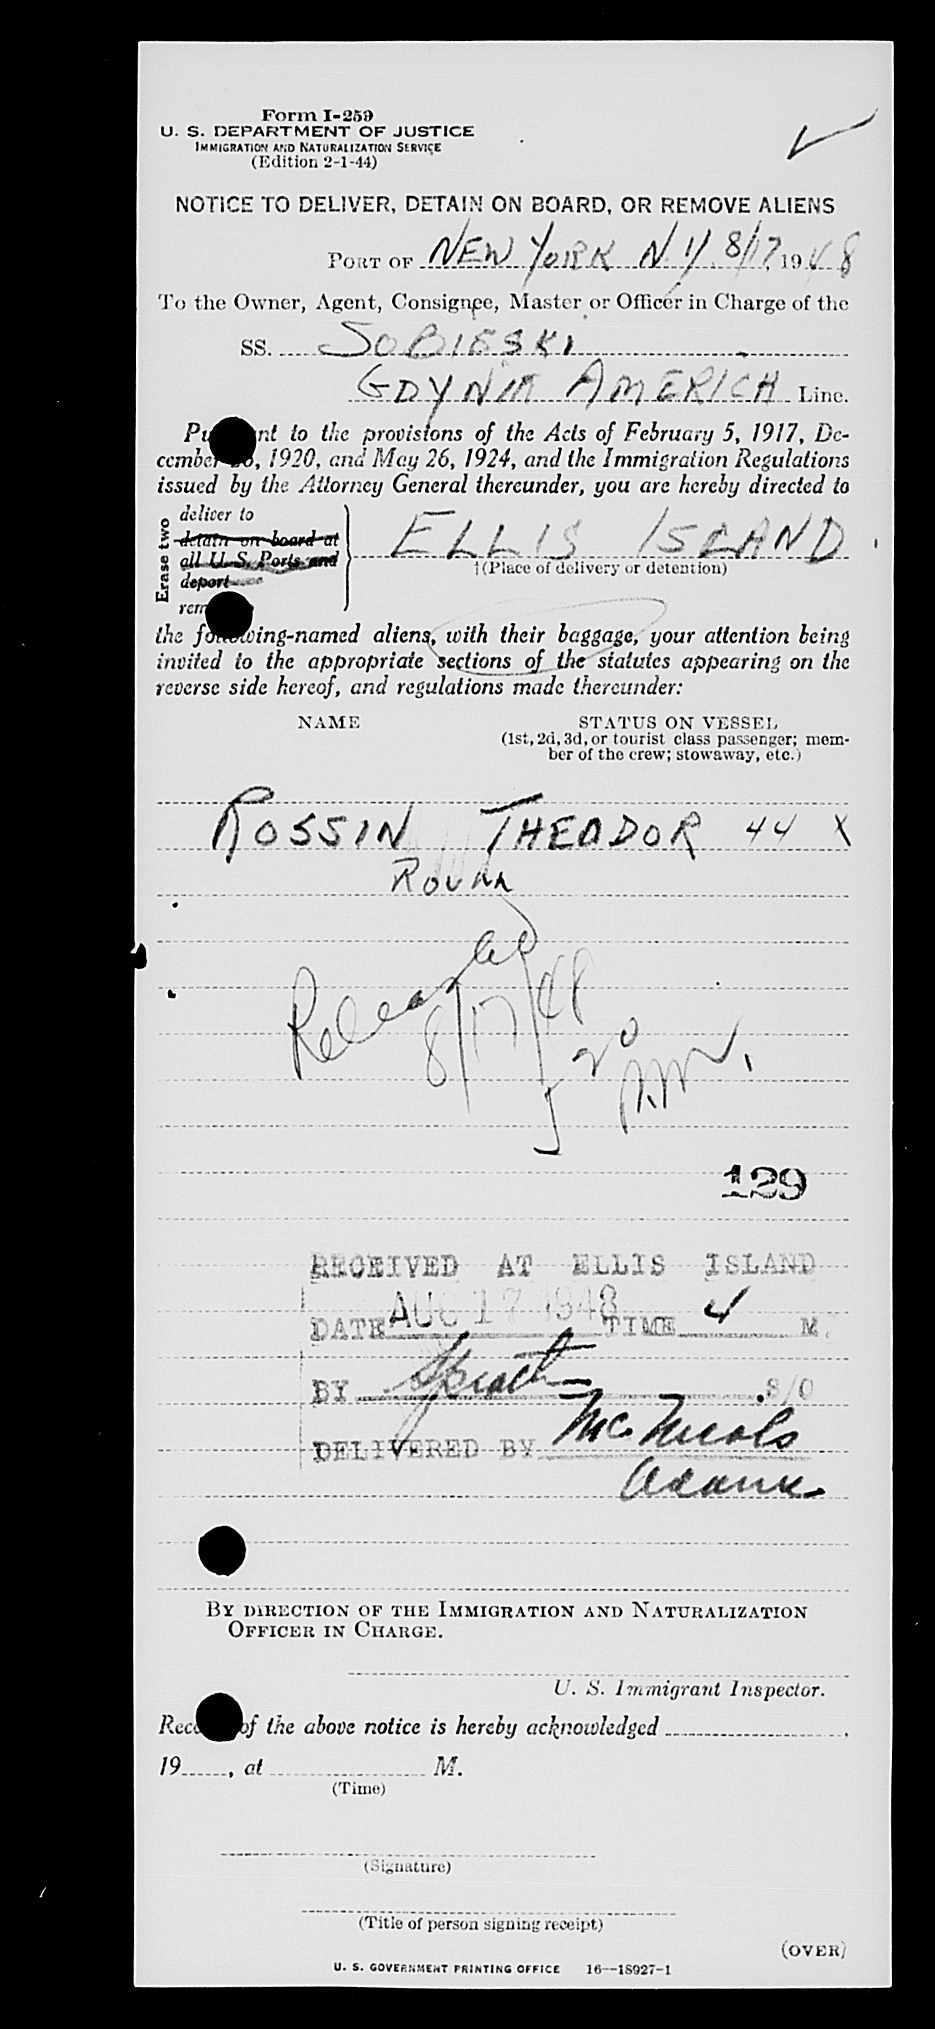 Form I-259
U. S. DEPARTMENT OF JUSTICE
IMMIGRATION AND NATURALIZATION SERVICE
(Edition 2-1-44)
NOTICE TO DELIVER, DETAIN ON BOARD, OR REMOVE ALIENS
PORT OF NEW YORK N.Y. 8/17, 1948
To the Owner, Agent, Consignee, Master or Officer in Charge of the
SS. SOBIESKI
GDYNIA AMERICA Line.
Pu nt to the provisions of the Acts of February 5, 1917, De-
cember 26, 1920, and May 26, 1924, and the Immigration Regulations
issued by the Attorney General thereunder, you are hereby directed to
Erase two
deliver to
detain on board at
all U. S. Ports and
deport
rem
ELLIS ISLAND
†(Place of delivery or detention)
the following-named aliens, with their baggage, your attention being
invited to the appropriate sections of the statutes appearing on the
reverse side hereof, and regulations made thereunder:
NAME STATUS ON VESSEL
(1st, 2d, 3d, or tourist class passenger; mem-
ber of the crew; stowaway, etc.)
ROSSIN THEODOR 44 X
Released
8/17/48
5 20 P.M.
129
RECEIVED AT ELLIS ISLAND
DATE AUG 17 1948 TIME 4 M.
BY S/O
DELIVERED BY McNicols
BY DIRECTION OF THE IMMIGRATION AND NATURALIZATION
OFFICER IN CHARGE.
U. S. Immigrant Inspector.
Rece of the above notice is hereby acknowledged ,
19 , at M.
(Time)
(Signature)
(Title of person signing receipt)
(OVER)
U. S. GOVERNMENT PRINTING OFFICE 16—18927-1